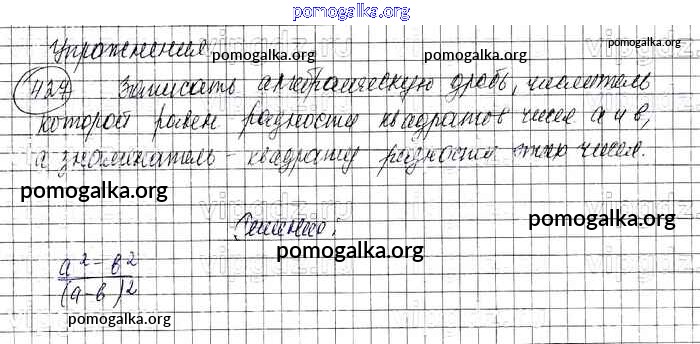 pomogalka.org
Упражнения
pomogalka.org
pomogalka.org
427 Записать алгебраическую дробь, числитель
которой равен разности квадратов чисел a и b,
а знаменатель - квадрату разности этих чисел.
pomogalka.org
pomogalka.org
Решение:
pomogalka.org
a² - b²
(a-b)²
pomogalka.org